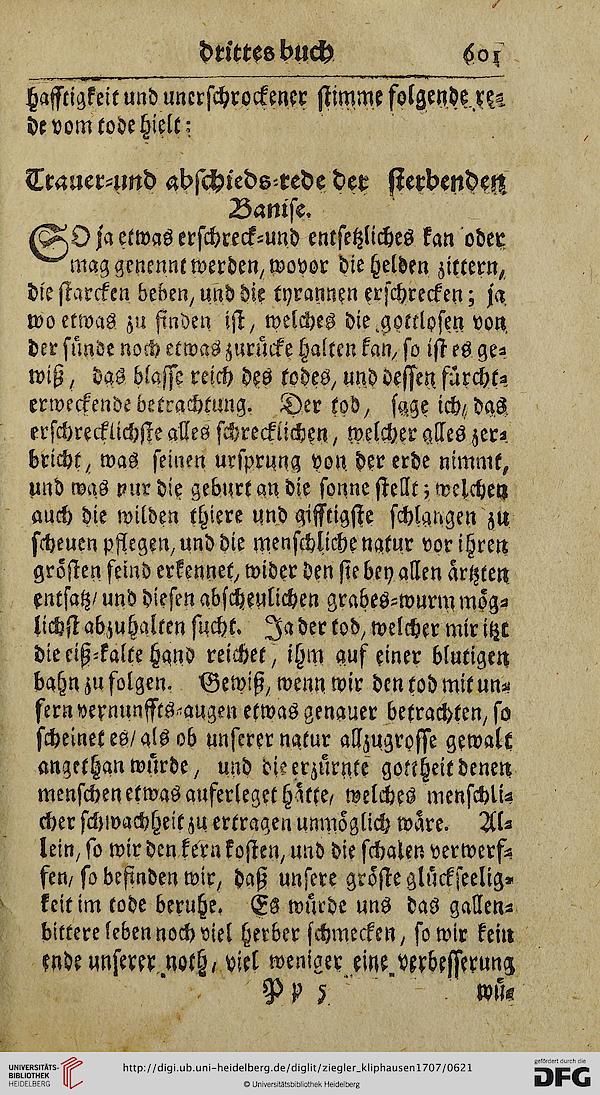 drittes buch 601
hafftigkeit und unerschrockener stimme folgende re-
de vom tode hielt:
Trauer-und abschieds-rede der sterbenden
Banise.
SO ja etwas erschreck-und entsetzliches kan oder
mag genennt werden, wovor die helden zittern,
die starcken beben, und die tyrannen erschrecken; ja
wo etwas zu finden ist, welches die gottlosen von
der sünde noch etwas zurücke halten kan, so ist es ge-
wiß, das blasse reich des todes, und dessen fürcht-
erweckende betrachtung. Der tod, sage ich, das
erschrecklichste alles schrecklichen, welcher alles zer-
bricht, was seinen ursprung von der erde nimmt,
und was nur die geburt an die sonne stellt; welchen
auch die wilden thiere und gifftigste schlangen zu
scheuen pflegen, und die menschliche natur vor ihren
grösten feind erkennet, wider den sie bey allen ärtzten
entsatz/ und diesen abscheulichen grabes-wurm mög-
lichst abzuhalten sucht. Ja der tod, welcher mir itzt
die eiß-kalte hand reichet, ihm auf einer blutigen
bahn zu folgen. Gewiß, wenn wir den tod mit un-
sern vernunffts-augen etwas genauer betrachten, so
scheinet es/ als ob unserer natur allzugrosse gewalt
angethan würde, und die erzürnte gottheit denen
menschen etwas auferleget hätte, welches menschli-
cher schwachheit zu ertragen unmöglich wäre. Al-
lein, so wir den kern kosten, und die schalen verwerf-
fen/ so befinden wir, daß unsere gröste glückseelig-
keit im tode beruhe. Es würde uns das gallen-
bittere leben noch viel herber schmecken, so wir kein
ende unserer noth, viel weniger eine verbesserung
P p 5 wü-
UNIVERSITÄTS-
BIBLIOTHEK
HEIDELBERG
http://digi.ub.uni-heidelberg.de/diglit/ziegler_kliphausen1707/0621
© Universitätsbibliothek Heidelberg
gefördert durch die
DFG